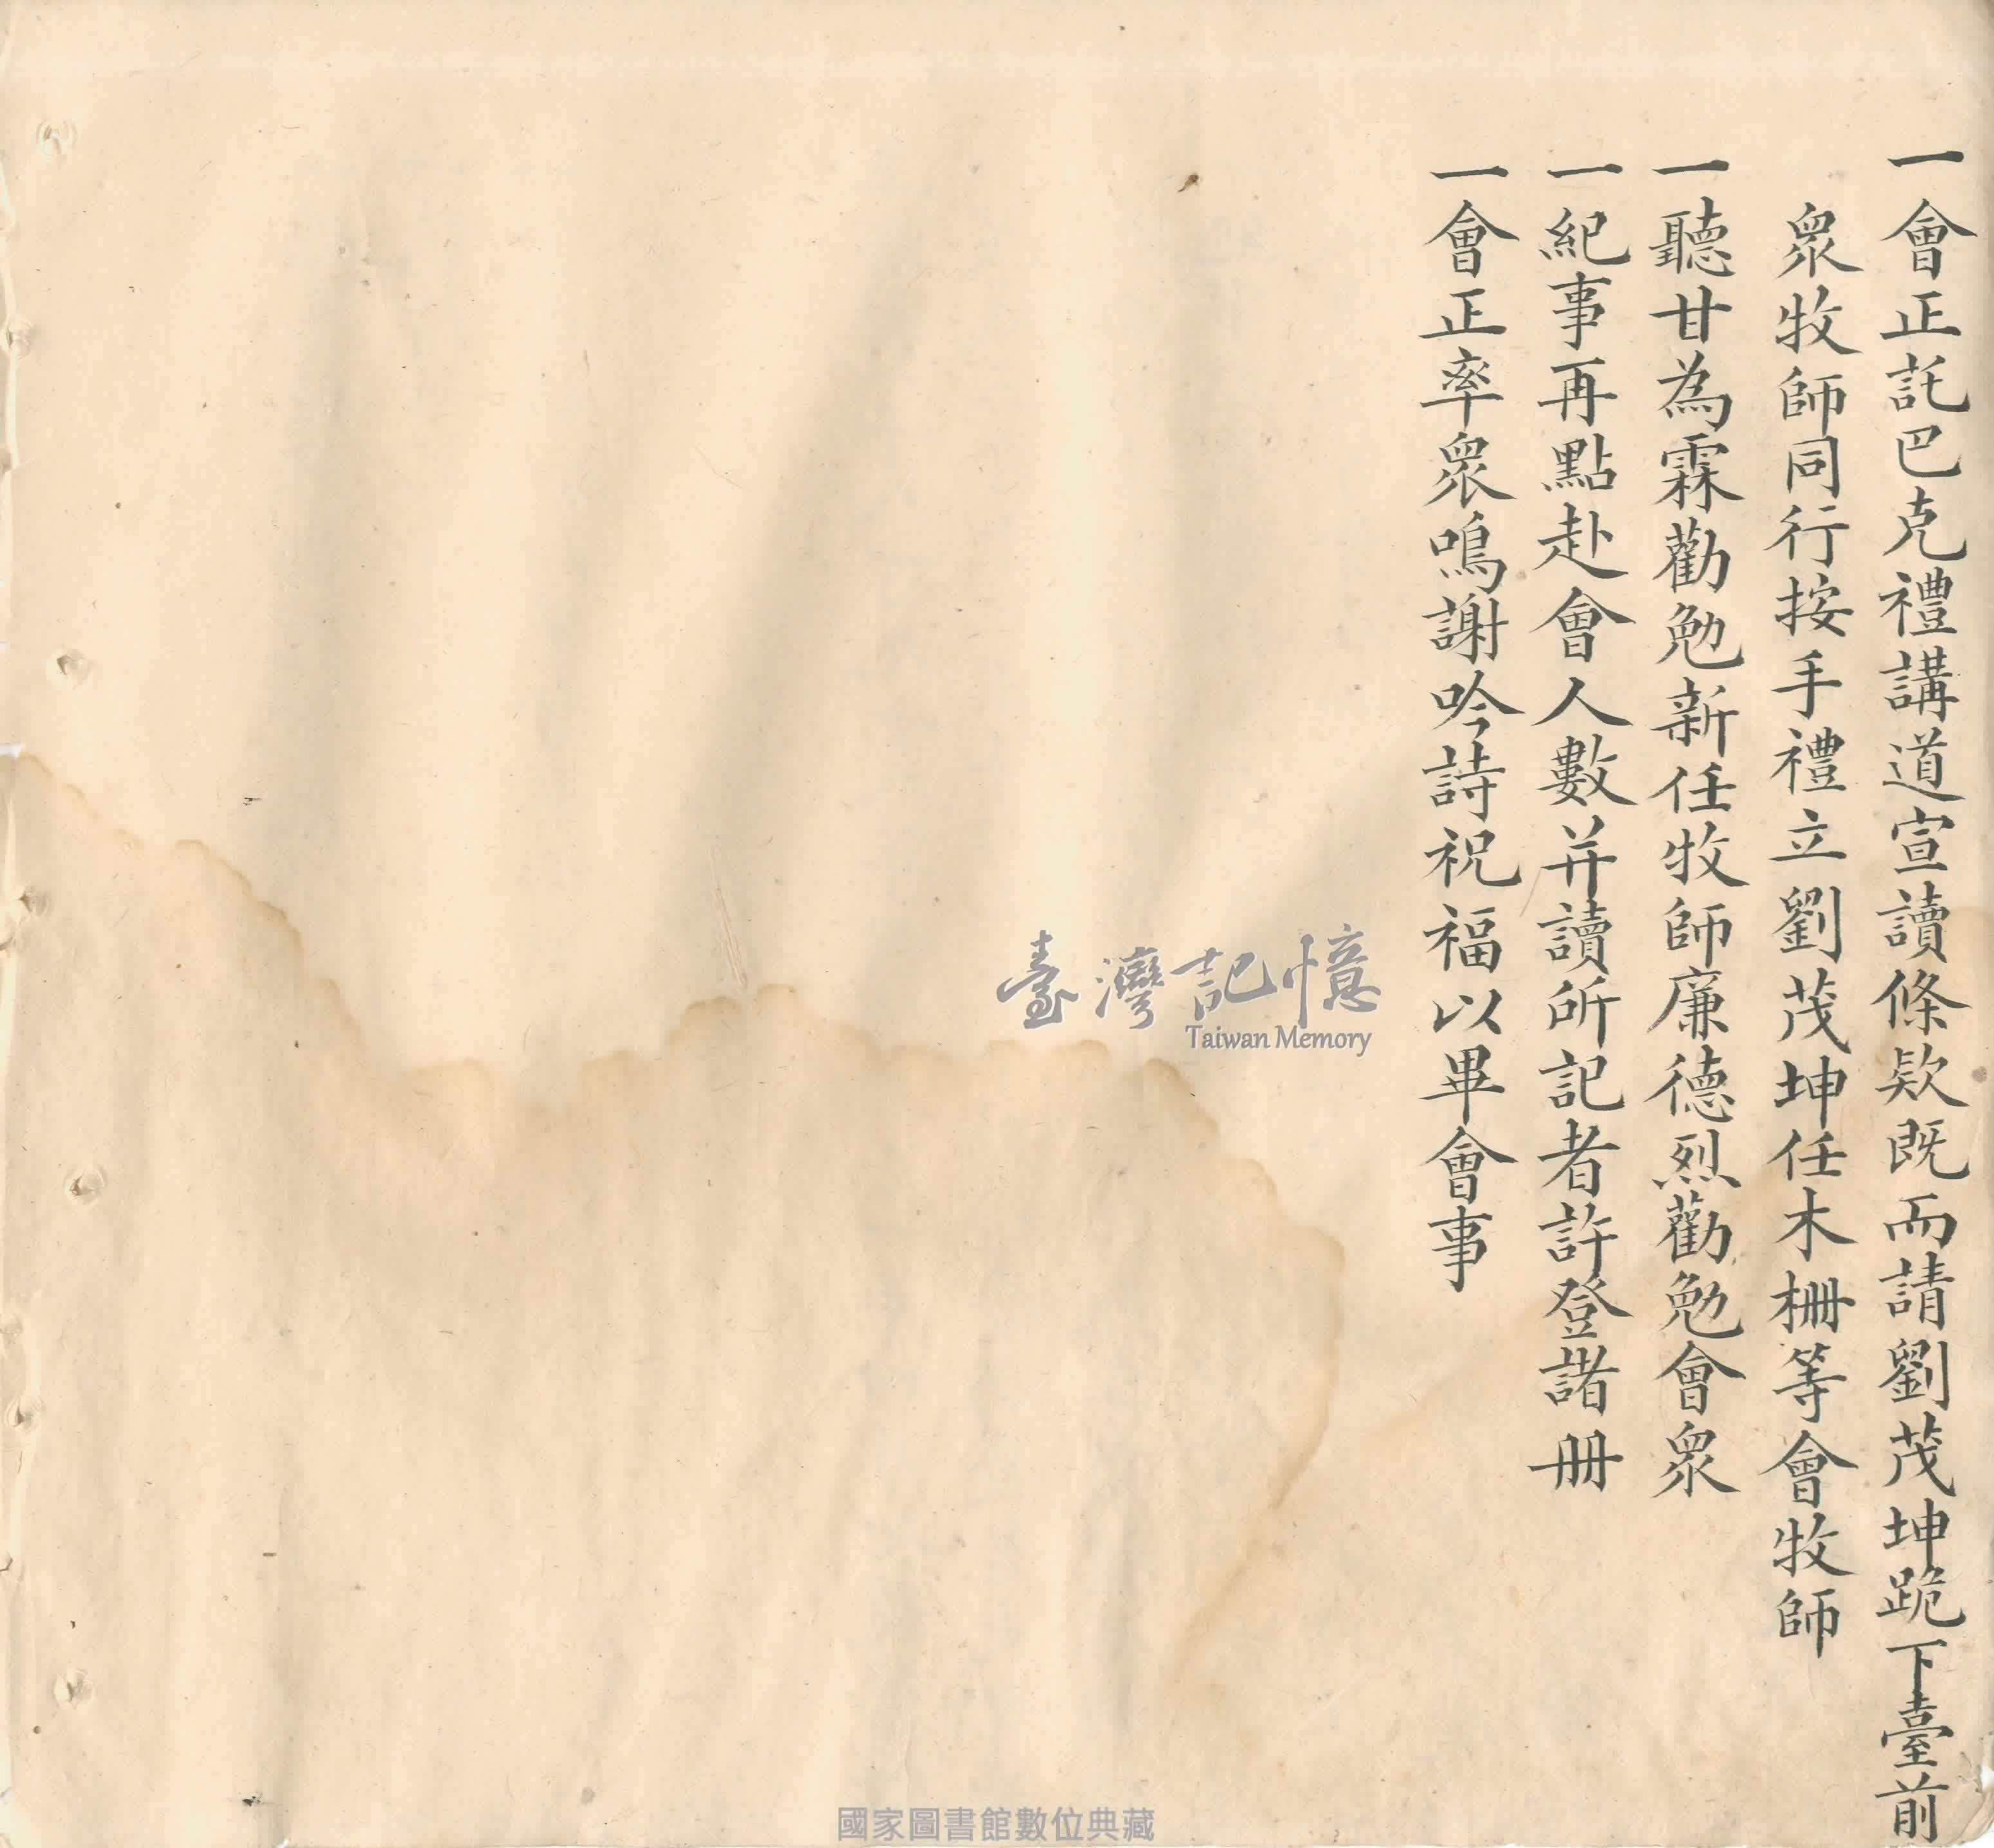 一會正託巴克禮講道宣讀條欵既而請劉茂坤跪下臺前
眾牧師同行按手禮立劉茂坤任木柵等會牧師
一聽甘為霖勸勉新任牧師廉德烈勸勉會眾
一紀事再點赴會人數并讀所記者許登諸冊
一會正率眾鳴謝吟詩祝福以畢會事
臺灣記憶
Taiwan Memory
國家圖書館數位典藏